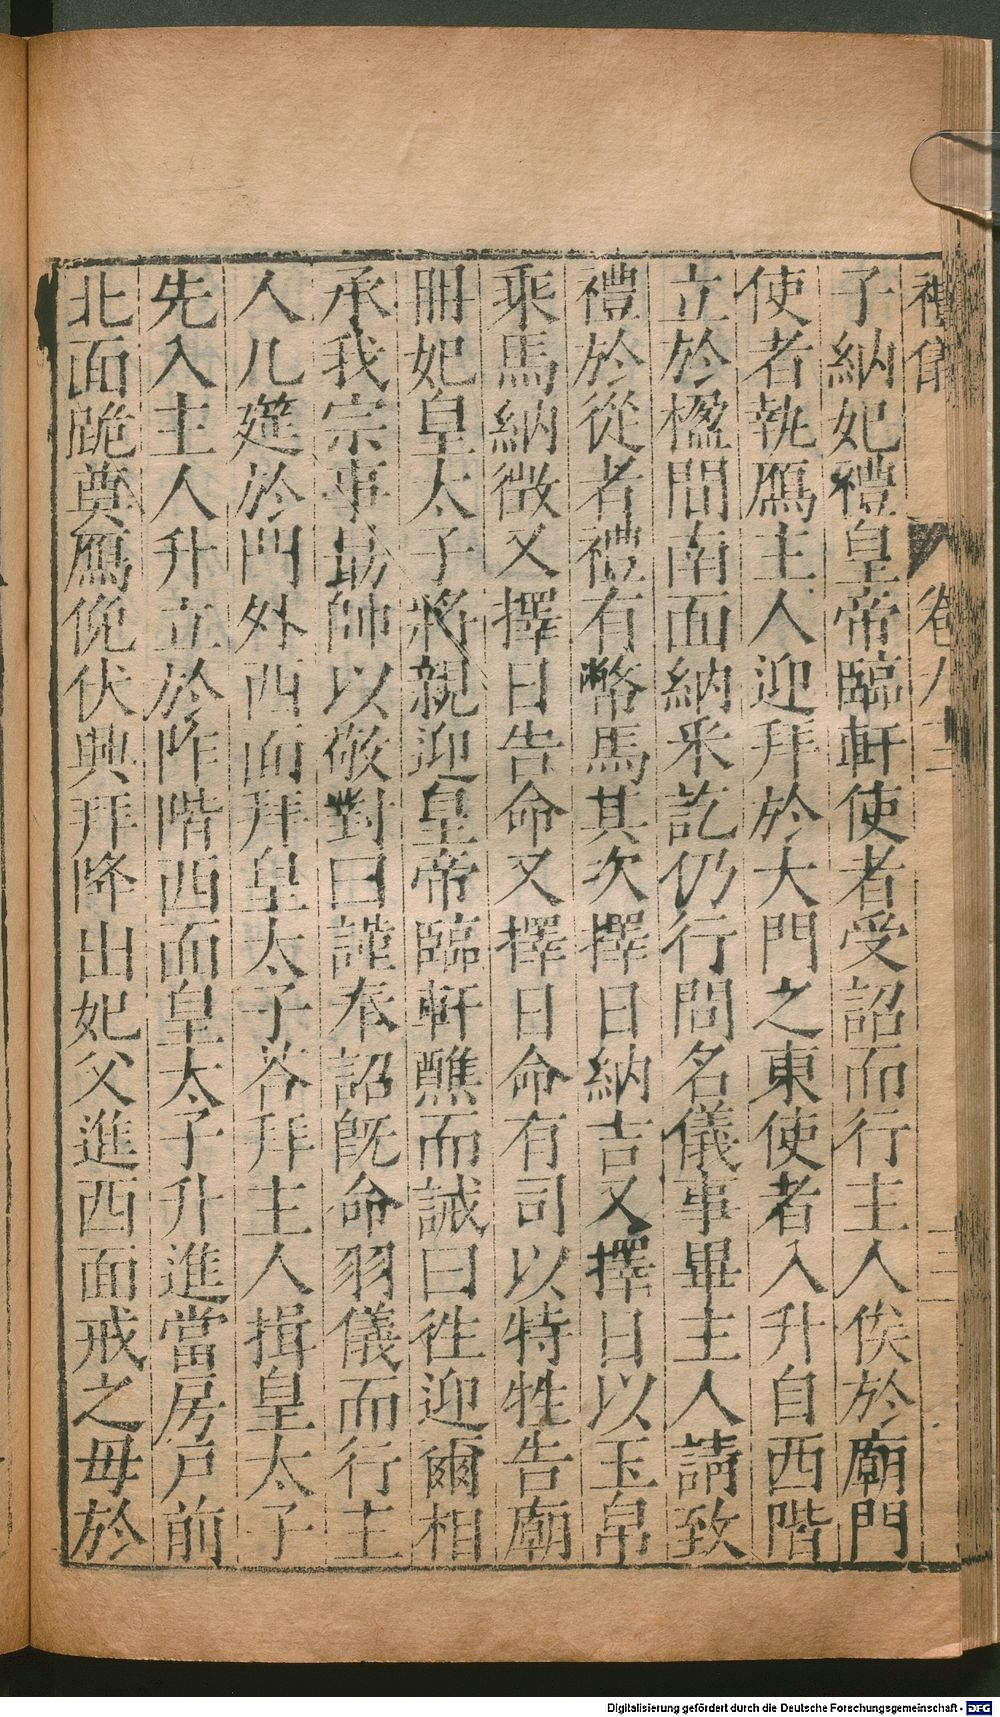 子納妃禮皇帝臨軒使者受詔而行主人俟於廟門
使者執鴈主人迎拜於大門之東使者入升自西階
立於楹間南面納采訖仍行問名儀事畢主人請致
禮於從者禮有幣馬其次擇日納吉又擇日以玉帛
乘馬納徵又擇日告命又擇日命有司以特牲告廟
冊妃皇太子將親迎皇帝臨軒醮而誡曰往迎爾相
承我宗事勗帥以敬對曰謹奉詔旣命羽儀而行主
人几筵於門外西面拜皇太子荅拜主人揖皇太子
先入主人升立於阼階西面皇太子升進當房戸前
北面跪奠鴈俛伏興拜降出妃父進西面戒之毋於
卷八
Digitalisierung gefördert durch die Deutsche Forschungsgemeinschaft - DFG